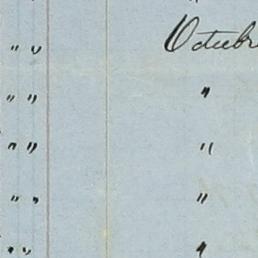 " " Octobr
" " "
" " "
" " "
" " "